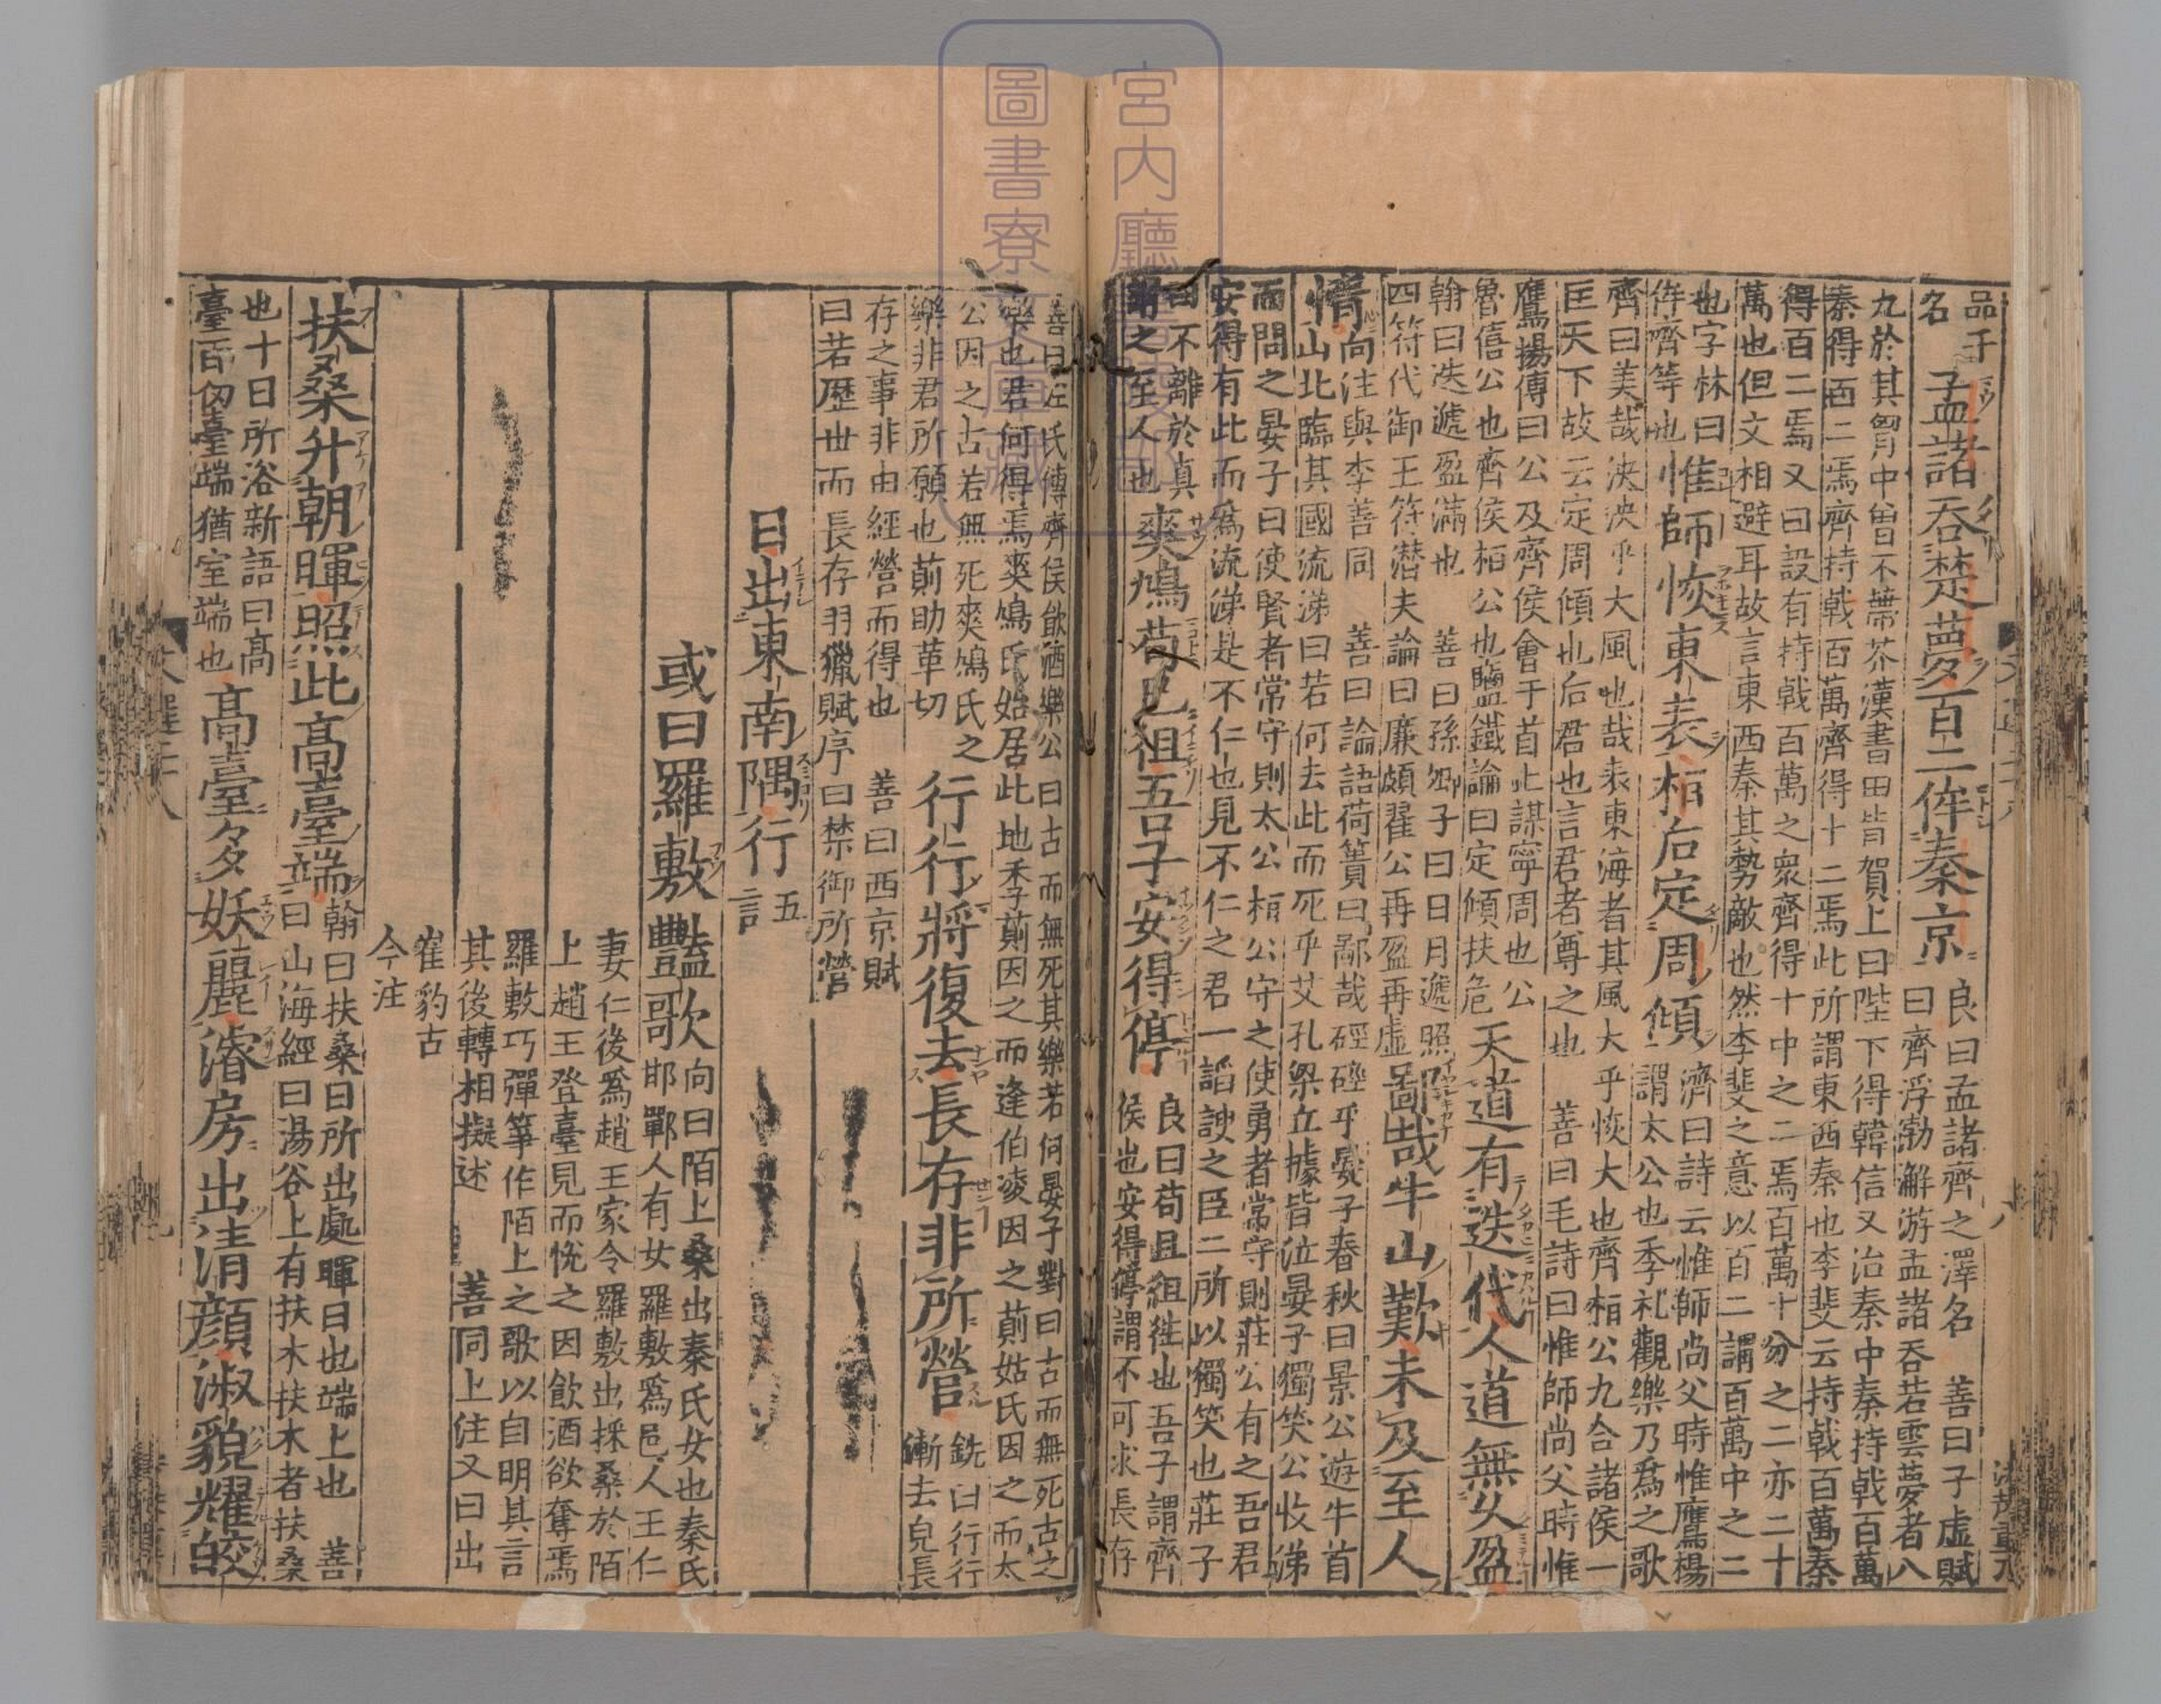 品子
名
孟諸吞楚夢百二侔秦京
良曰孟諸齊之澤名 善曰子虛賦
曰齊浮渤澥游孟諸吞若雲夢者八
九於其胷中曽不蔕芥漢書田肯賀上曰陛下得韓信又治秦中秦持戟百萬
秦得百二焉齊持戟百萬齊得十二焉此所謂東西秦也李斐云持戟百萬秦
得百二焉又曰設有持戟百萬之衆齊得十中之二焉百萬十分之二亦二十
萬也但文相避耳故言東西秦其勢敵也然李斐之意以百二謂百萬中之二
也字林曰
侔齊等也
惟師恢東表桓后定周傾
濟曰詩云惟師尚父時惟鷹楊
謂太公也季礼觀樂乃爲之歌
齊曰美哉泱泱乎大風也哉表東海者其風大乎恢大也齊桓公九合諸侯一
匡天下故云定周傾也后君也言君者尊之也 善曰毛詩曰惟師尚父時惟
鷹揚傳曰公及齊侯會于首止謀寧周也公
魯僖公也齊侯桓公也鹽鐵論曰定傾扶危
天道有迭代人道無久盈
翰曰迭遞盈滿也 善曰孫卿子曰日月遞照
四符代御王符潜夫論曰廉頗翟公再盈再虛
鄙哉牛山歎未及至人
情
向注與李善同 善曰論語荷蕢曰鄙哉硜硜乎晏子春秋曰景公遊牛首
山北臨其國流涕曰若何去此而死乎艾孔梁立據皆泣晏子獨笑公收涕
而問之晏子曰使賢者常守則太公桓公守之使勇者常守則莊公有之吾君
安得有此而爲流涕是不仁也見不仁之君一諂諛之臣二所以獨笑也莊子
曰不離於真
謂之至人也
爽鳩苟已徂吾子安得停
良曰苟且徂徃也吾子謂齊
侯也安得停謂不可求長存
善曰左氏傳齊侯飮酒樂公曰古而無死其樂若何晏子對曰古而無死古之
樂也君何得焉爽鳩氏始居此地季萴因之而逢伯凌因之萴姑氏因之而太
公因之古若無死爽鳩氏之
樂非君所願也萴助革切
行行將復去長存非所營
銑曰行行
漸去皃長
存之事非由經營而得也 善曰西京賦
曰若歷世而長存羽獵賦序曰禁御所營
日出東南隅行
五
言
或曰羅敷豔歌
向曰陌上桑出秦氏女也秦氏
邯鄲人有女羅敷爲邑人王仁
妻仁後爲趙王家令羅敷出採桑於陌
上趙王登臺見而悅之因飮酒欲奪焉
羅敷巧彈箏作陌上之歌以自明其言
其後轉相擬述 善同上注又曰出
崔豹古
今注
扶桑升朝暉照此高臺端
翰曰扶桑日所出處暉日也端上也 善
曰山海經曰湯谷上有扶木扶木者扶桑
也十日所浴新語曰高
臺百仞臺端猶室端也
高臺多妖麗濬房出清顏淑貌耀皎
文選二十八
宮内廳
圖書寮
文庫藏